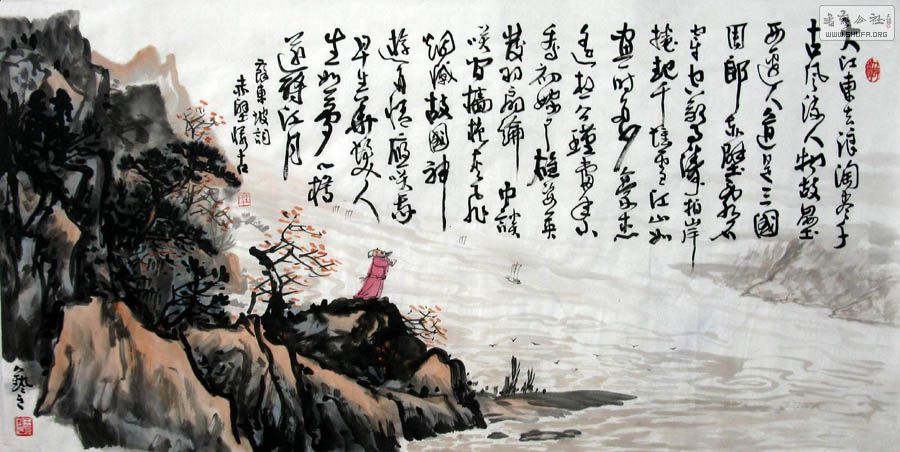 大江東去浪淘盡千
古風流人物故壘
西邊人道是三國
周郎赤壁亂石
穿空驚濤拍岸
捲起千堆雪江山如
畫一時多少豪杰
遙想公瑾當年小
喬初嫁了雄姿英
發羽扇綸巾談
笑間檣櫓灰飛
烟滅故國神
遊多情應笑我
早生華髮人
生如夢一樽
還酹江月
蘇東坡詞
赤壁懷古
書法公社
WWW.SHUFA.ORG